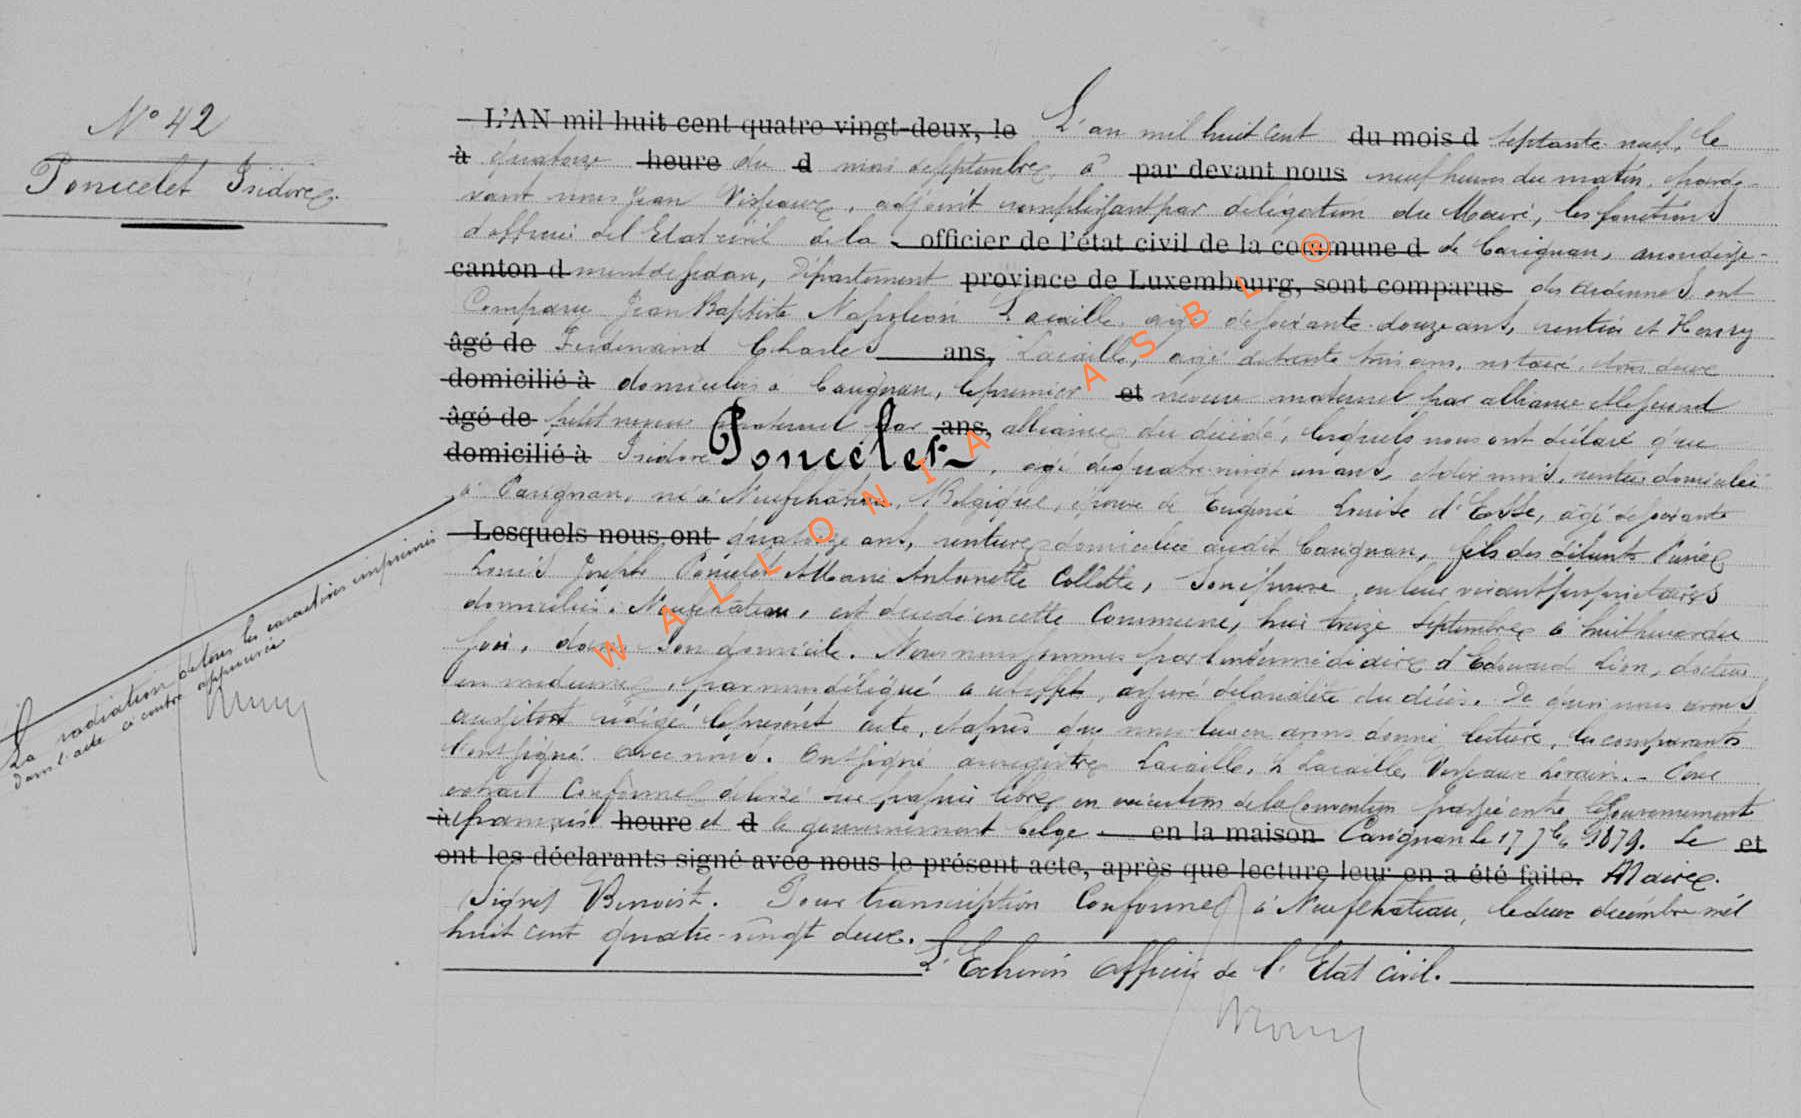 N° 42
Poncelet Isidore.
L'AN mil huit cent quatre-vingt-deux, le L'an mil huit cent du mois d septante neuf, le
à quatorze heure du d mois de septembre, à par devant nous neuf heures du matin, pardevant
nous Jean Verjeaux, adjoint remplissant par délégation du Maire, les fonctions
d'officier de l'Etat civil de la officier de l'état civil de la commune d de Carignan, arrondisse-
canton d ment de Sedan, département province de Luxembourg, sont comparus des ardennes ont
Comparu Jean Baptiste Napoléon Lacaille, agé de soixante-douze ans, rentier et Henry
âgé de Ferdinand Charles ans, Lacaille, agé de trente trois ans, notaire, tous deux
domicilié à domiciliés à Carignan, le premier et neveu maternel par alliance et le second
âgé de petit neveu maternel par ans, alliance du décédé, lesquels nous ont déclaré que
domicilié à Isidore Poncelet, agé de quatre-vingt un ans, et dix mois, rentier domicilié
à Carignan, né à Neufchâteau, Belgique, époux de Eugénie Louise d'Este, agé de soixante
Lesquels nous ont quatorze ans, rentière domiciliée audit Carignan, fils des défunts
Louis Joseph Poncelet et Marie Antoinette Collette, son épouse, en leur vivant propriétaires
domiciliés à Neufchâteau, est décédé en cette Commune, hier treize septembre à huit heures du
soir, dans son domicile. Nous nous sommes par l'intermédiaire d'Edouard Lion, docteur
en médecine, par nous délégué à cet effet, assuré de la réalité du décès. De quoi nous avons
aussitôt rédigé le présent acte, et après que nous leur en avons donné lecture, les comparants
l'ont signé avec nous. Ont signé au registre Lacaille, h Lacaille, Verjeaux Lorain. - Pour
extrait Conforme délivré sur papier libre, en exécution de la Convention passée entre le Gouvernement
à français heure et d le gouvernement belge en la maison Carignan le 17 7bre 1879. Le et
ont les déclarants signé avec nous le présent acte, après que lecture leur en a été faite. Maire.
Signé Benoist. Pour transcription Conforme à Neufchateau, le deux décembre mil
huit cent quatre-vingt deux.
L'Echevin Officier de l'Etat civil.
La radiation de tous les caractères imprimés
dans l'acte ci contre approuvée
WALLONIA ASBL ®